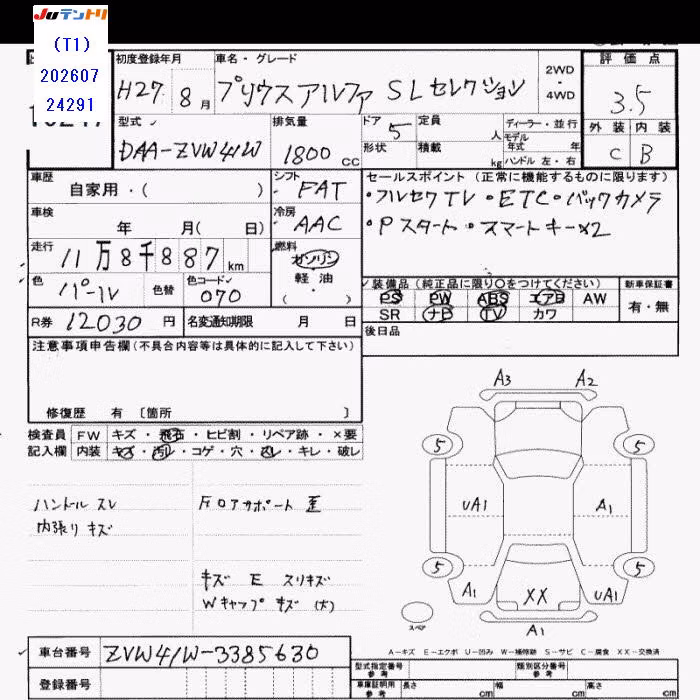 Juテントリ
(T1)
202607
24291
初度登録年月
車名・グレード
評価点
H27 8月
プリウスアルファ SLセレクション
2WD・4WD
3.5
型式
排気量
ドア
定員
人
ディーラー・並行
外装
内装
DAA-ZVW41W
1800cc
5
形状
積載
kg
モデル年式
年
ハンドル 左・右
C
B
車歴
自家用・( )
シフト
FAT
セールスポイント (正常に機能するものに限ります)
・フルセグTV・ETC・バックカメラ
車検
年 月( 日)
冷房
AAC
・Pスタート・スマートキー×2
走行
11万8千887km
燃料
ガソリン
軽油
( )
色
パール
色替
色コード
070
装備品 (純正品に限り○をつけてください)
新車保証書
PS PW ABS エアB AW
SR ナビ TV カワ
有・無
R券
12030円
名変通知期限
月 日
後日品
注意事項申告欄(不具合内容等は具体的に記入して下さい)
修復歴 有 〔箇所 〕
検査員
記入欄
FW
キズ・飛石・ヒビ割・リペア跡・×要
内装
キズ・汚レ・コゲ・穴・スレ・キレ・破レ
ハンドル スレ
内張り キズ
FフロアサポートE 歪
キズ E スリキズ
Wキャップ キズ (大)
A3
A2
5
5
UA1
A1
5
5
A1
XX
UA1
スペア
A1
A-キズ E-エクボ U-凹み W-補修跡 S-サビ C-腐食 XX-交換済
車台番号
ZVW41W-3385630
登録番号
型式指定番号
参考
類別区分番号
参考
車庫証明用
参考
長さ
cm
幅
cm
高さ
cm